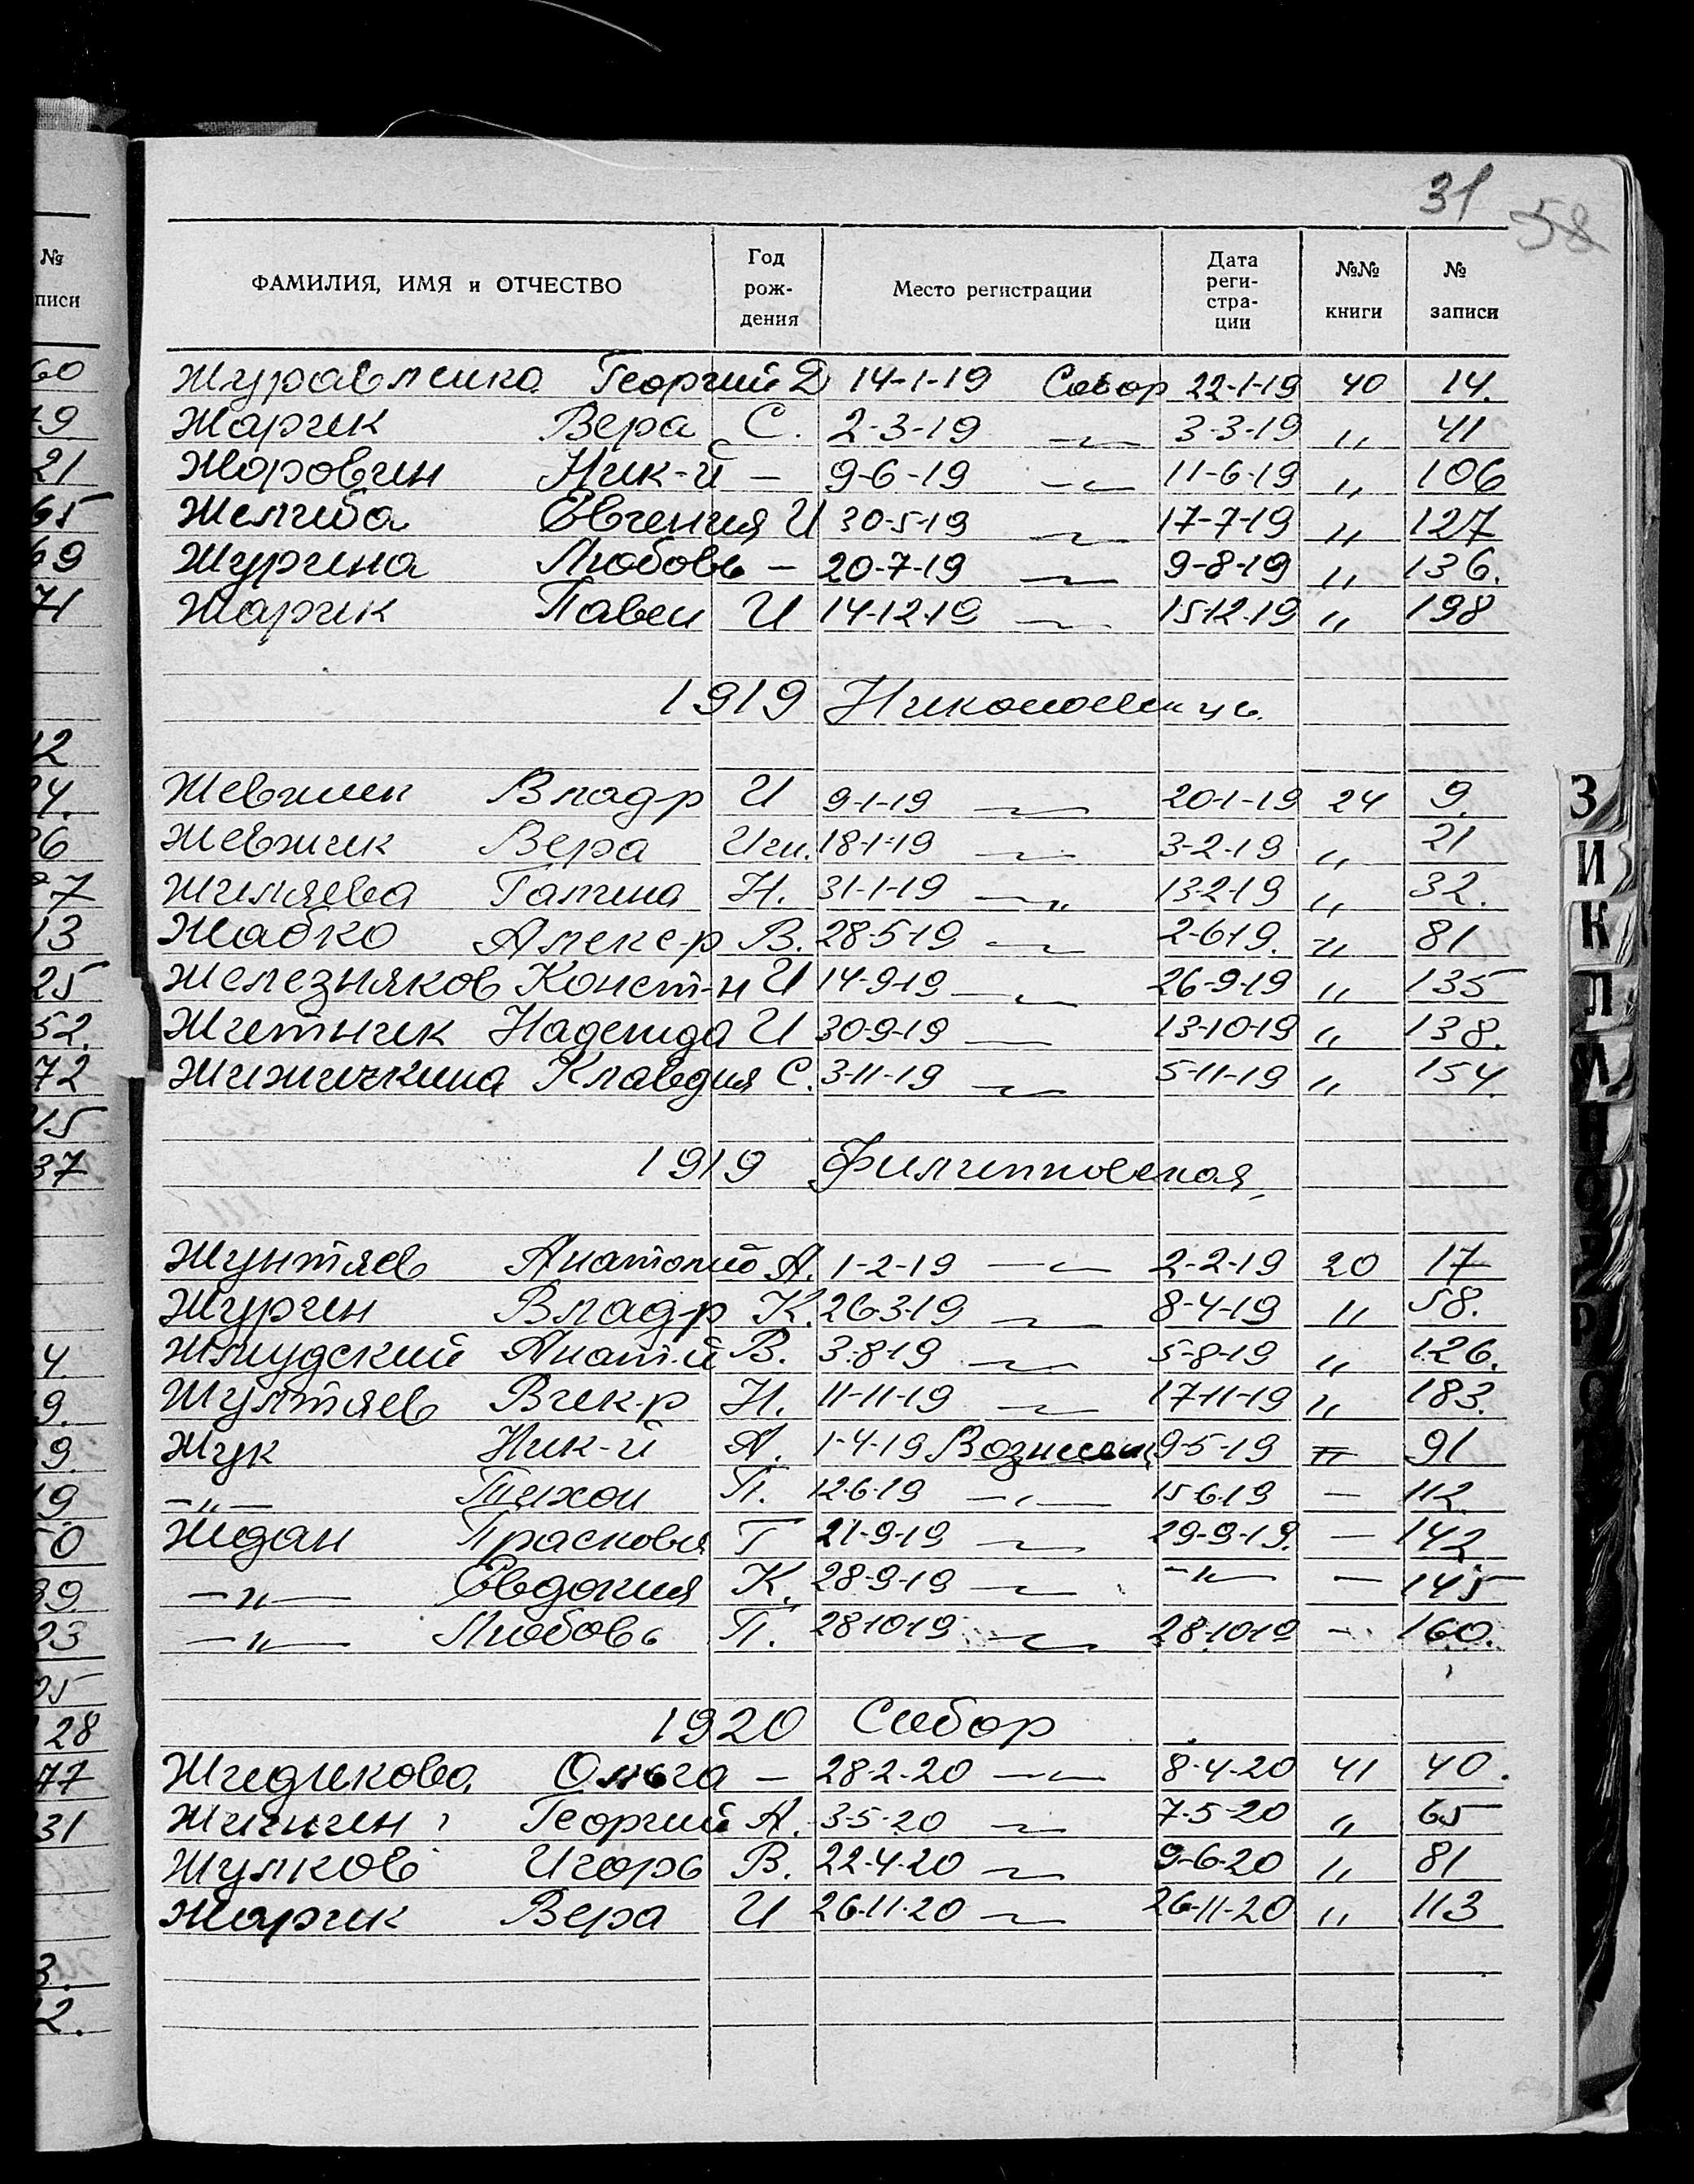 31
58
№
писи
ФАМИЛИЯ, ИМЯ и ОТЧЕСТВО
Год рождения
Место регистрации
Дата регистрации
№№ книги
№ записи
Журавленко Георгий Д 14-1-19 Собор 22-1-19 40 14.
Жарик Вера С. 2-3-19 —〃— 3-3-19 〃 41
Жаровин Ник-й — 9-6-19 —〃— 11-6-19 〃 106
Желиба Евгения И 30-5-19 —〃— 17-7-19 〃 127
Журина Любовь — 20-7-19 —〃— 9-8-19 〃 136.
Жарик Павел И 14-12-19 —〃— 15-12-19 〃 198
1919
Жевжик Владр И 9-1-19 —〃— 20-1-19 24 9.
Жевжик Вера Игн. 18-1-19 —〃— 3-2-19 〃 21
Жиляева Галина Н. 31-1-19 —〃 13-2-19 〃 32.
Жабко Алекс-р В. 28-5-19 —〃— 2-6-19. 〃 81
Железняков Конст-н И 14-9-19 —〃— 26-9-19 〃 135
Житник Надежда И 30-9-19 — 13-10-19 〃 138.
Жижичкина Клавдия С. 3-11-19 —〃— 5-11-19 〃 154.
1919 Филипповская
Жунтяев Анатолий А. 1-2-19 —〃— 2-2-19 20 17
Журин Владр К. 26-3-19 —〃— 8-4-19 〃 58.
Жмудский Анат-й В. 3-8-19 —〃— 5-8-19 〃 126.
Жултяев Вик-р Н. 11-11-19 —〃— 17-11-19 〃 183.
Жук Ник-й А. 1-4-19 9-5-19 91
—〃— Тихон П. 12-6-19 —〃— 15-6-19 — 112
Ждан Прасковья Г 21-9-19 —〃— 29-9-19. — 142
—〃— Евдокия К. 28-9-19 —〃— —〃— — 145
—〃— Любовь П. 28-10-19 —〃— 28-10-19 — 160.
1920 Собор
Жидикова Ольга — 28-2-20 —〃— 8-4-20 41 40.
Георгий А. 3-5-20 —〃— 7-5-20 〃 65
Жулков Игорь В. 22-4-20 —〃— 9-6-20 〃 81
Жарик Вера И 26-11-20 —〃— 26-11-20 〃 113
З
И
К
Л
М